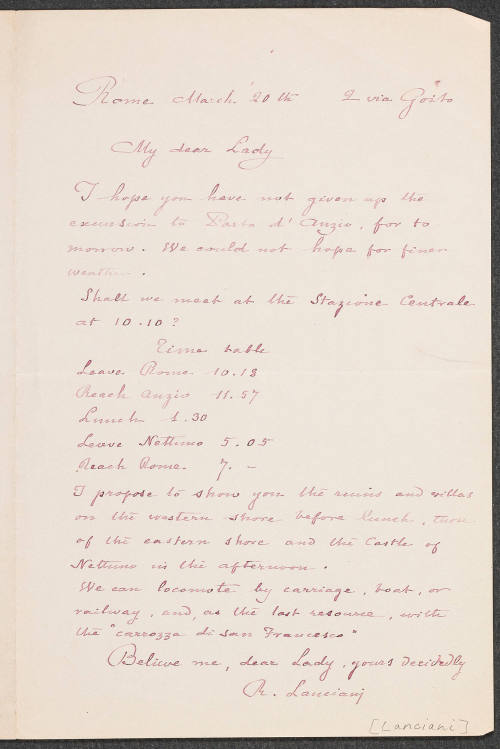 Rome March 20th 2 via Goito
My dear Lady
I hope you have not given up the
excursion to Porto d'Anzio, for to
morrow. We could not hope for finer
weather.
Shall we meet at the Stazione Centrale
at 10.10?
Time table
Leave Rome 10.18
Reach Anzio 11.57
Lunch 1.30
Leave Nettuno 5.05
Reach Rome. 7. –
I propose to show you the ruins and villas
on the western shore before lunch, those
of the eastern shore and the Castle of
Nettuno in the afternoon.
We can locomote by carriage, boat, or
railway, and, as the last resource, with
the "carrozza di San Francesco"
Believe me, dear Lady, yours decidedly
R. Lanciani
[Lanciani]